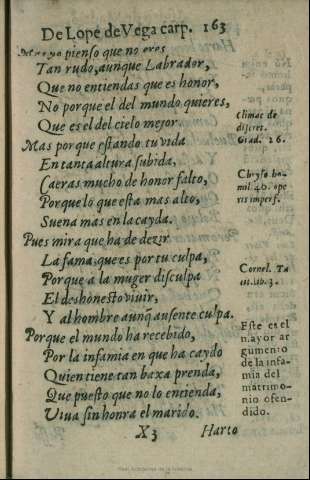 De Lope de Vega carp. 163
Mas yo pienso que no eres
Tan rudo, aunque Labrador,
Que no entiendas que es honor,
No porque el del mundo quieres,
Que es el del cielo mejor.
Mas porque estando tu vida
En tanta altura subida,
Caeras mucho de honor falto,
Porque lo que esta mas alto,
Suena mas en la cayda.
Pues mira que ha de dezir
La fama, que es por tu culpa,
Porque a la muger disculpa
El deshonesto viuir,
Y al hombre aunq̃ ausente culpa.
Porque el mundo ha recebido,
Por la infamia en que ha caydo
Quien tiene tan baxa prenda,
Que puesto que no lo entienda,
Viua sin honra el marido.
X3 Harto
Climac de
discret.
Grad. 26.
Chryso ho-
mil 40. ope
ris imperf.
Cornel. Ta
lib. 3.
Este es el
mayor ar
gumento
de la infa-
mia del
matrimo-
nio ofen-
dido.